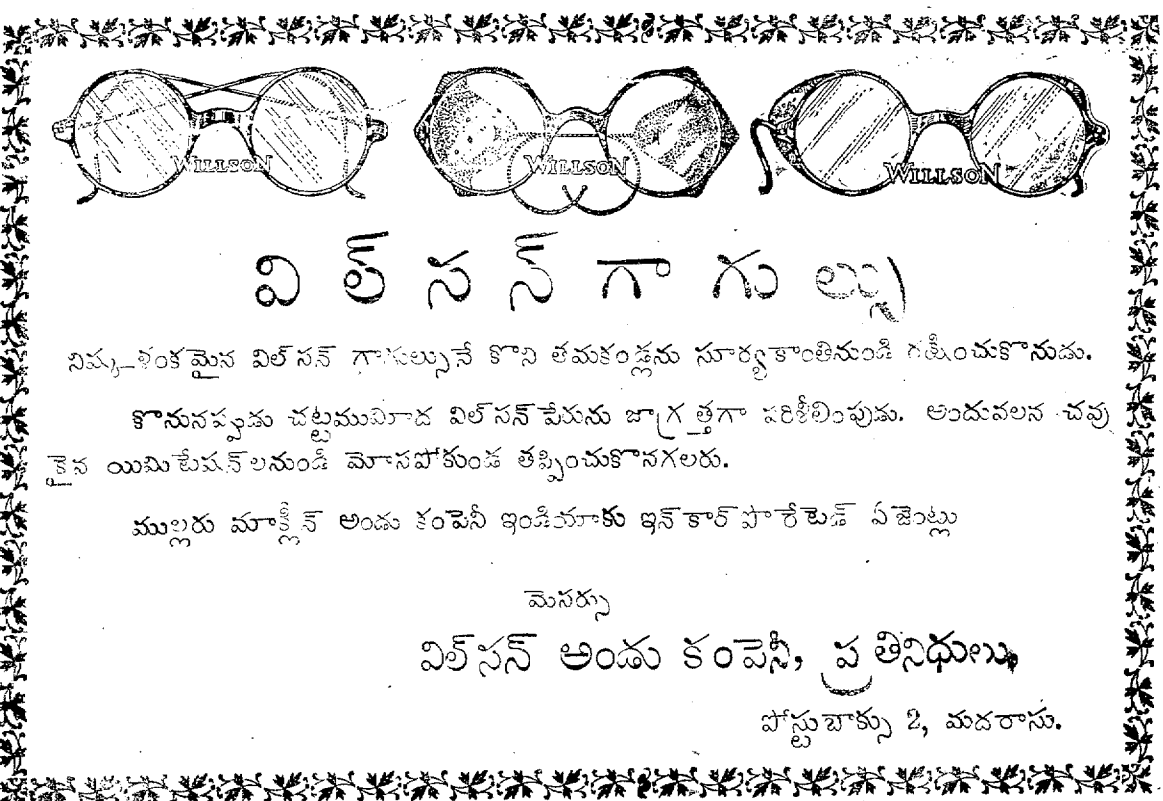 WILLSON WILLSON WILLSON
విల్సన్ గాగుల్సు
నిష్కళంకమైన విల్‌సన్ గాగుల్సునే కొని తమకండ్లను సూర్యకాంతినుండి రక్షించుకొనుడు.
కొనునప్పుడు చట్టముమీద విల్‌సన్ పేరును జాగ్రత్తగా పరిశీలింపుడు. అందువలన చవు
కైన యిమిటేషన్‌లనుండి మోసపోకుండ తప్పించుకొనగలరు.
ముల్లరు మాక్లీన్ అండు కంపెనీ ఇండియాకు ఇన్‌కార్‌పొరేటెడ్ ఏజెంట్లు
మెసర్సు
విల్‌సన్ అండు కంపెనీ, ప్రతినిధులు,
పోస్టుబాక్సు 2, మదరాసు.